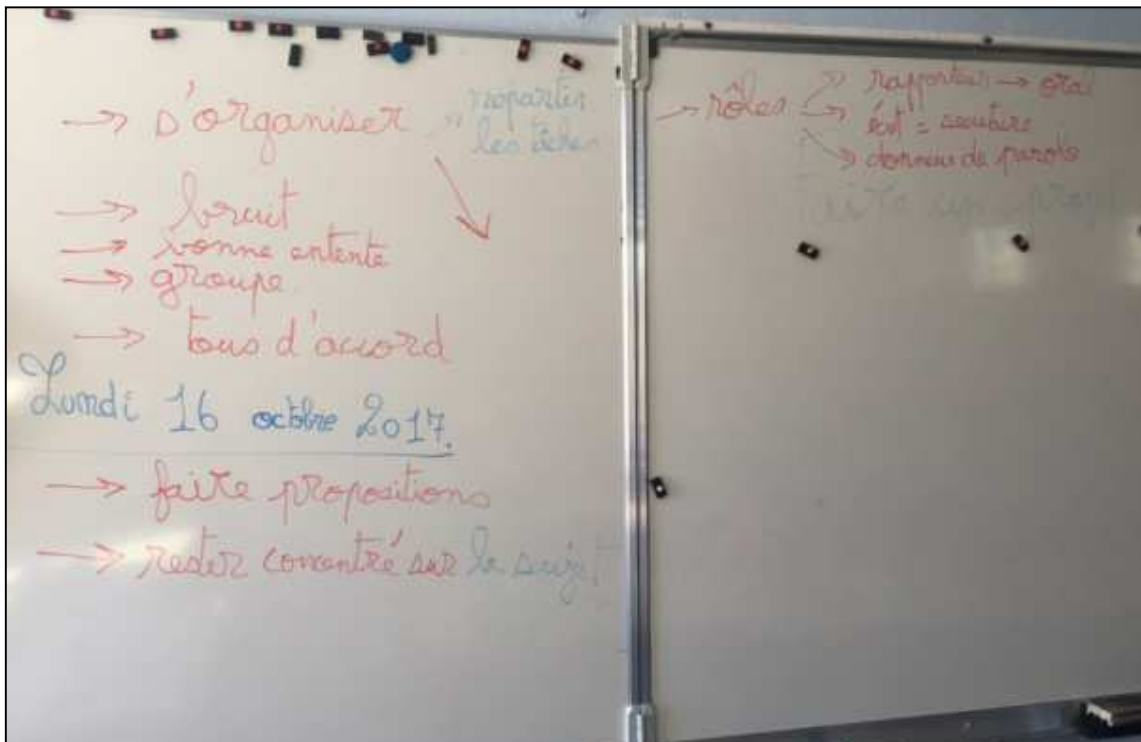 → s'organiser → répartir
les tâches
→ bruit
→ bonne entente
→ groupe
→ tous d'accord
Lundi 16 octobre 2017.
→ faire propositions
→ rester concentré sur le sujet
→ rôles → rapporteur → oral
→ écrit = secrétaire
→ donneur de parole